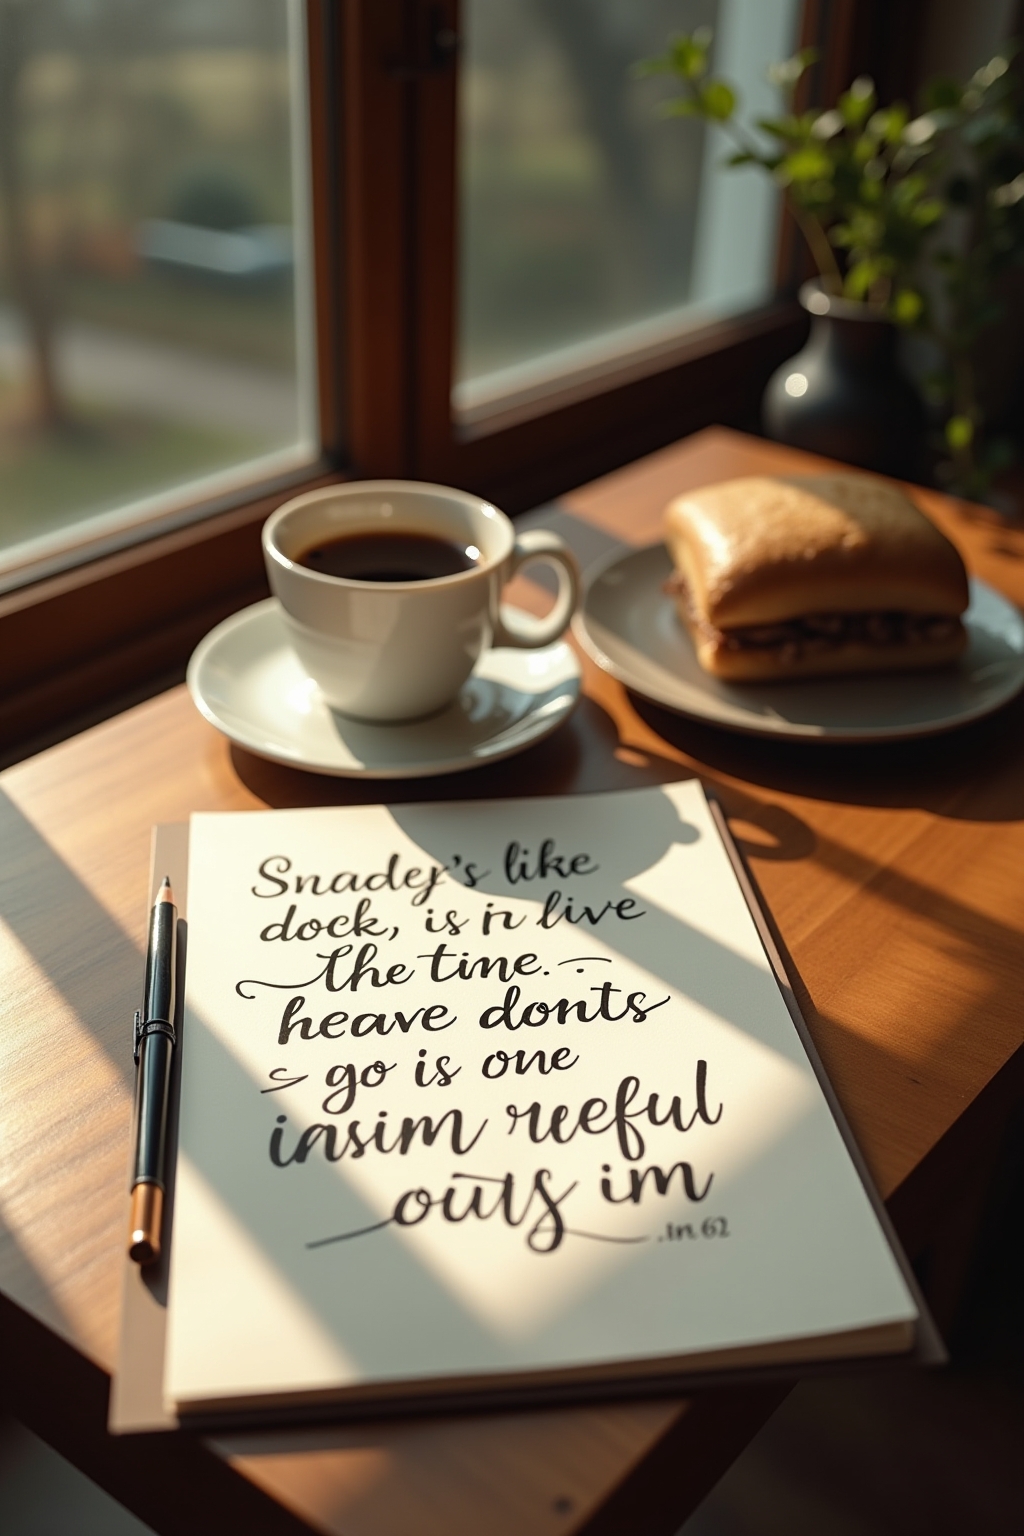 Snadey's like
dock, is in live
The time.
heave donts
go is one
insim reeful
outs im
.In 62